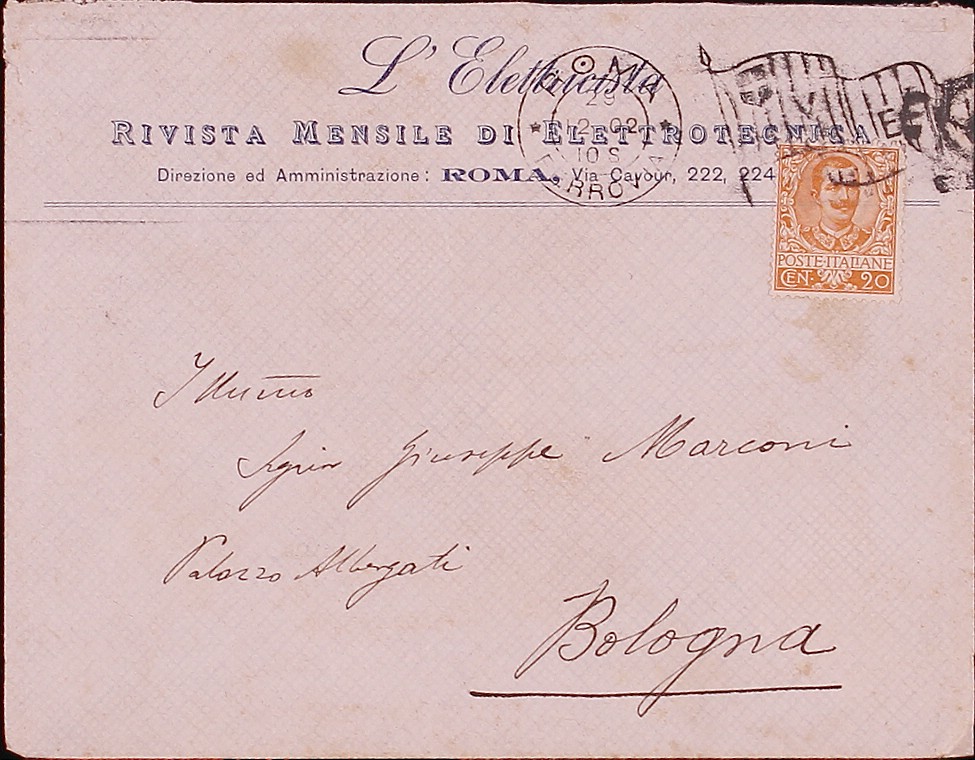 L' Elettricista
RIVISTA MENSILE DI ELETTROTECNICA
Direzione ed Amministrazione: ROMA, Via Cavour, 222, 224
ROMA
29
12-02
10 S
FERROVIA
POSTE·ITALIANE
CEN: 20
Illumo
Signor Giuseppe Marconi
Palazzo Albergati
Bologna